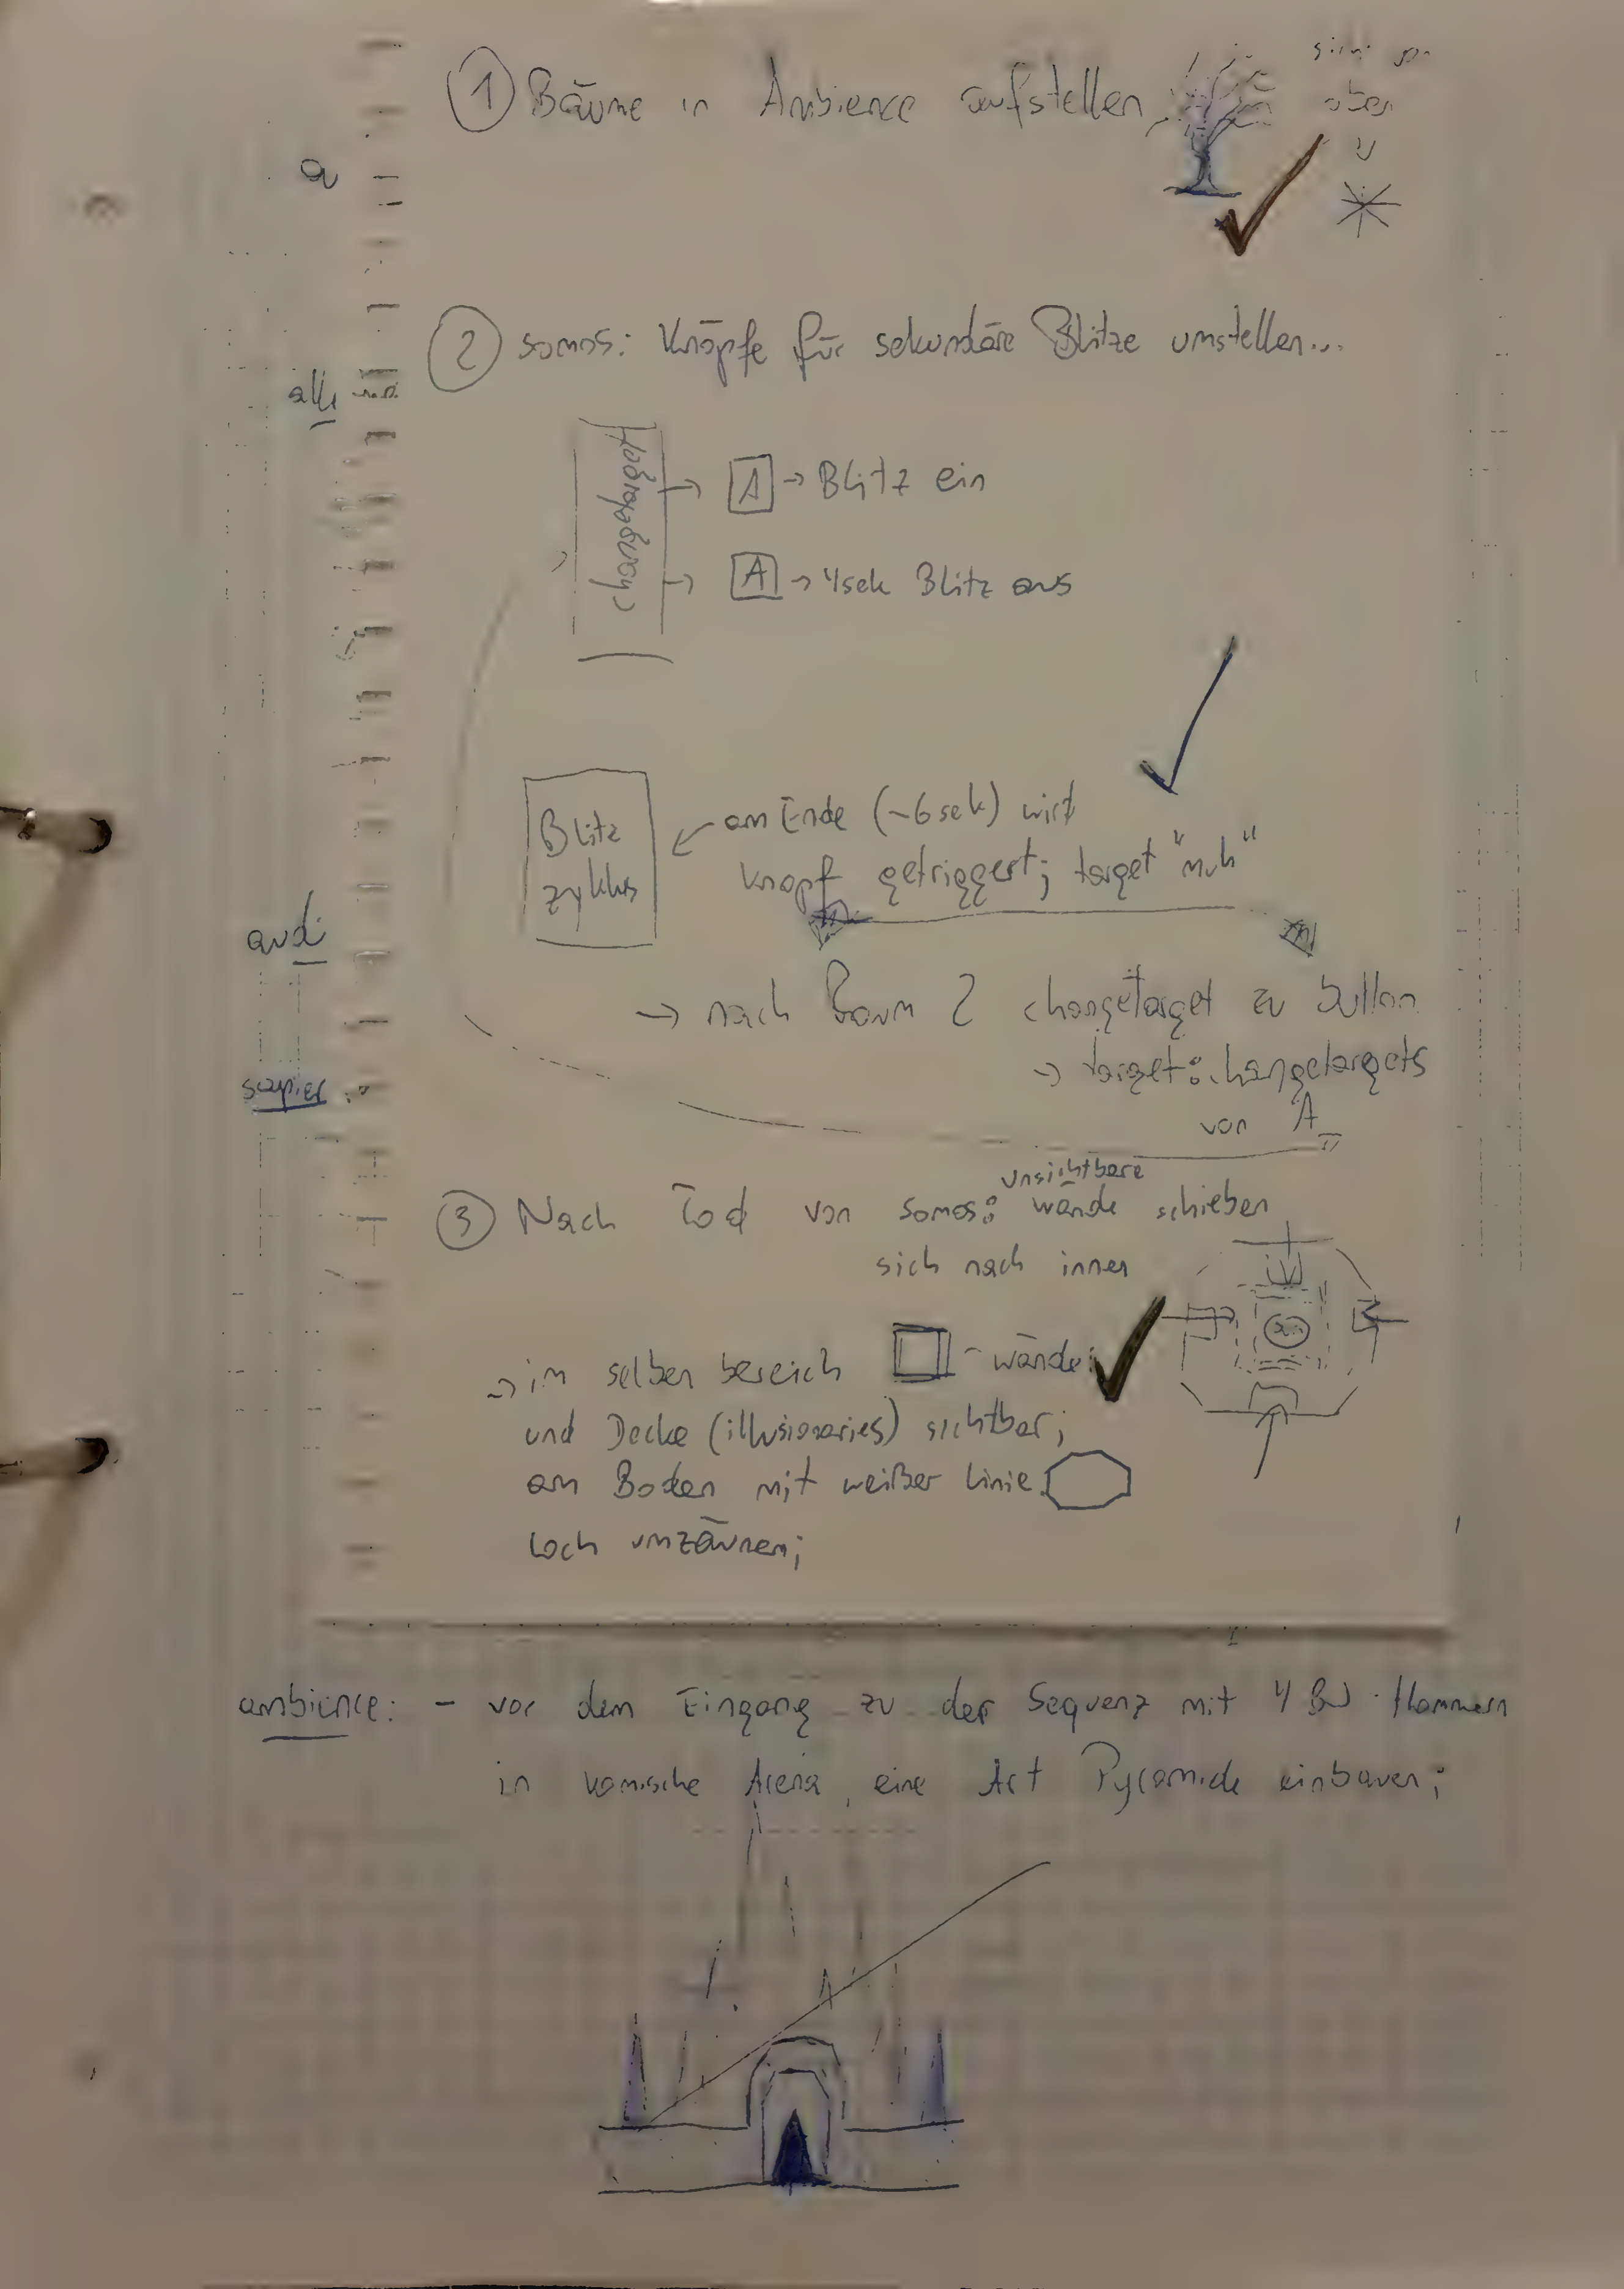 ① Bäume in Ambience aufstellen
oben
a
② somos: Knöpfe für sekundäre Blitze umstellen...
alle
changetarget
→ A → Blitz ein
→ A → 4sek Blitz aus
Blitz
zyklus
← am Ende (~6sek) wird
Knopf getriggert; target "muh"
→ nach Raum 2 changetarget zu button
→ target: changetargets
von A
③ Nach Tod von somos: unsichtbare wände schieben
sich nach innen
→ im selben bereich □ - wände
und Decke (illusionaries) sichtbar;
am Boden mit weißer Linie
Loch umzäunen;
ambience: - vor dem Eingang zu der Sequenz mit 4
in komische Arena, eine Art Pyramide einbauen;